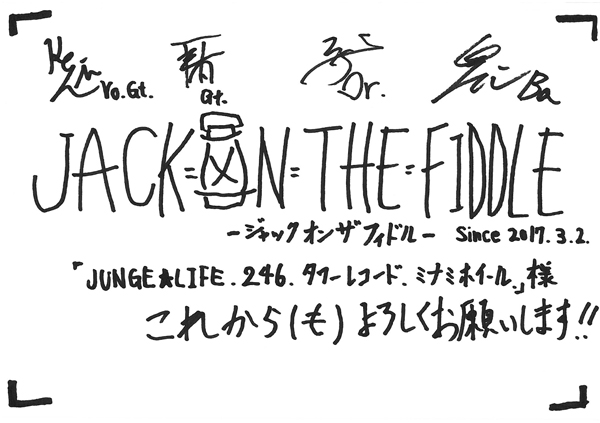 Vo.Gt. Gt. Dr. Ba
JACK=ON=THE=FIDDLE
-ジャックオンザフィドル- Since 2017.3.2.
「JUNGE★LIFE.246.タワーレコード.ミナミホイール.」様
これから(も)よろしくお願いします!!